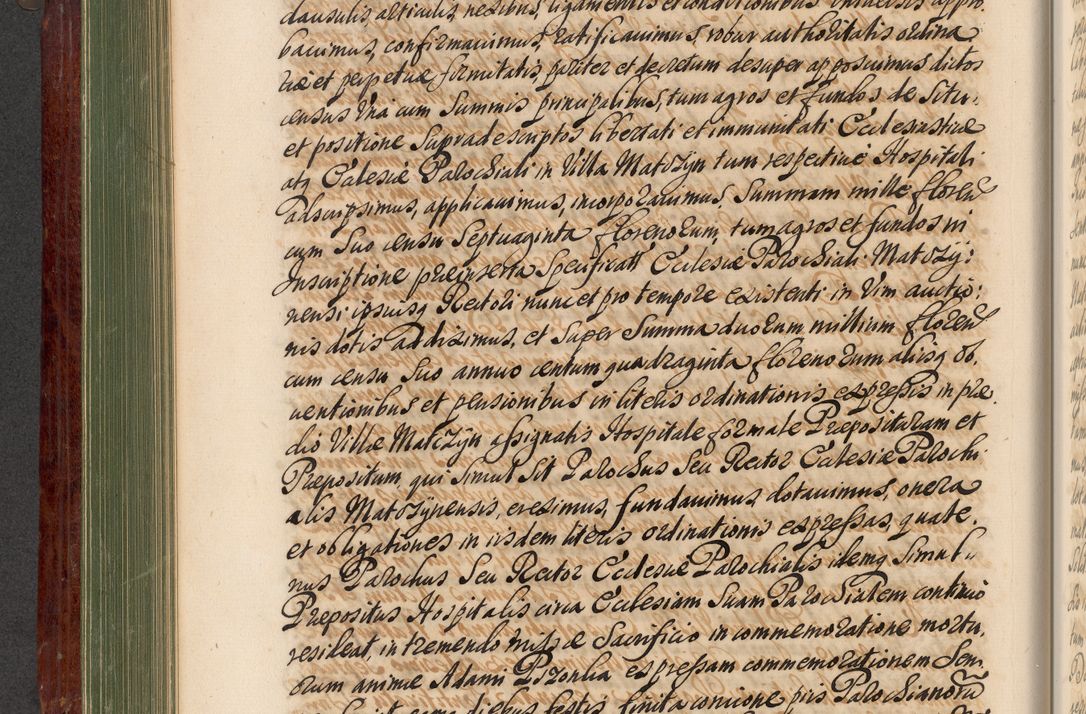 clausulis articulis, nexibus, ligamentis et conditionibus universis appro,
bavimus, confirmavimus, ratificavimus, robur authoritatis ordina
riæ et perpetuæ firmitatis, pariter et decretum desuper apposuimus dictos
census Una cum Summis principalibus, tum agros et fundos de Situ,
et positione Supradescriptos libertati et immunitati Ecclesiasticæ
atq Ecclesiæ Parochiali in Villa Matczyn tum respective Hospitali
adscripsimus, applicavimus, incorporavimus, Summam mille floren
cum Suo censu Septuaginta florenorum, tum agros et fundos in
Inscriptione præinserta Specificatt Ecclesiæ Parochiali Matczy:
nensi ipsiusq Rectori nunc et pro tempore existenti in Vim auctio:
nis dotis addiximus, et Super Summa duorum millium floren
cum censu Suo annuo centum quadraginta florenorum aliisq ob,
ventionibus et pensionibus in literis ordinationis expressis in præ,
dio Villæ Matczyn assignatis Hospitale formale Præposituram et
Præpositum, qui Simul Sit Parochus Seu Rector Ecclesiæ Parochi
alis Matczynensis, ereximus, fundavimus, dotavimus, onera
et obligationes in iisdem literis ordinationis expressas, quate,
nus Parochus Seu Rector Ecclesiæ Parochialis idemq Simul
Præpositus Hospitalis circa Ecclesiam Suam Parochialem continuo
resideat, in tremendo missæ Sacrificio in commemoratione mortu,
orum animæ Adami Pszonka expressam commemorationem Sem
diebus festis finita concione pris Parochianorū